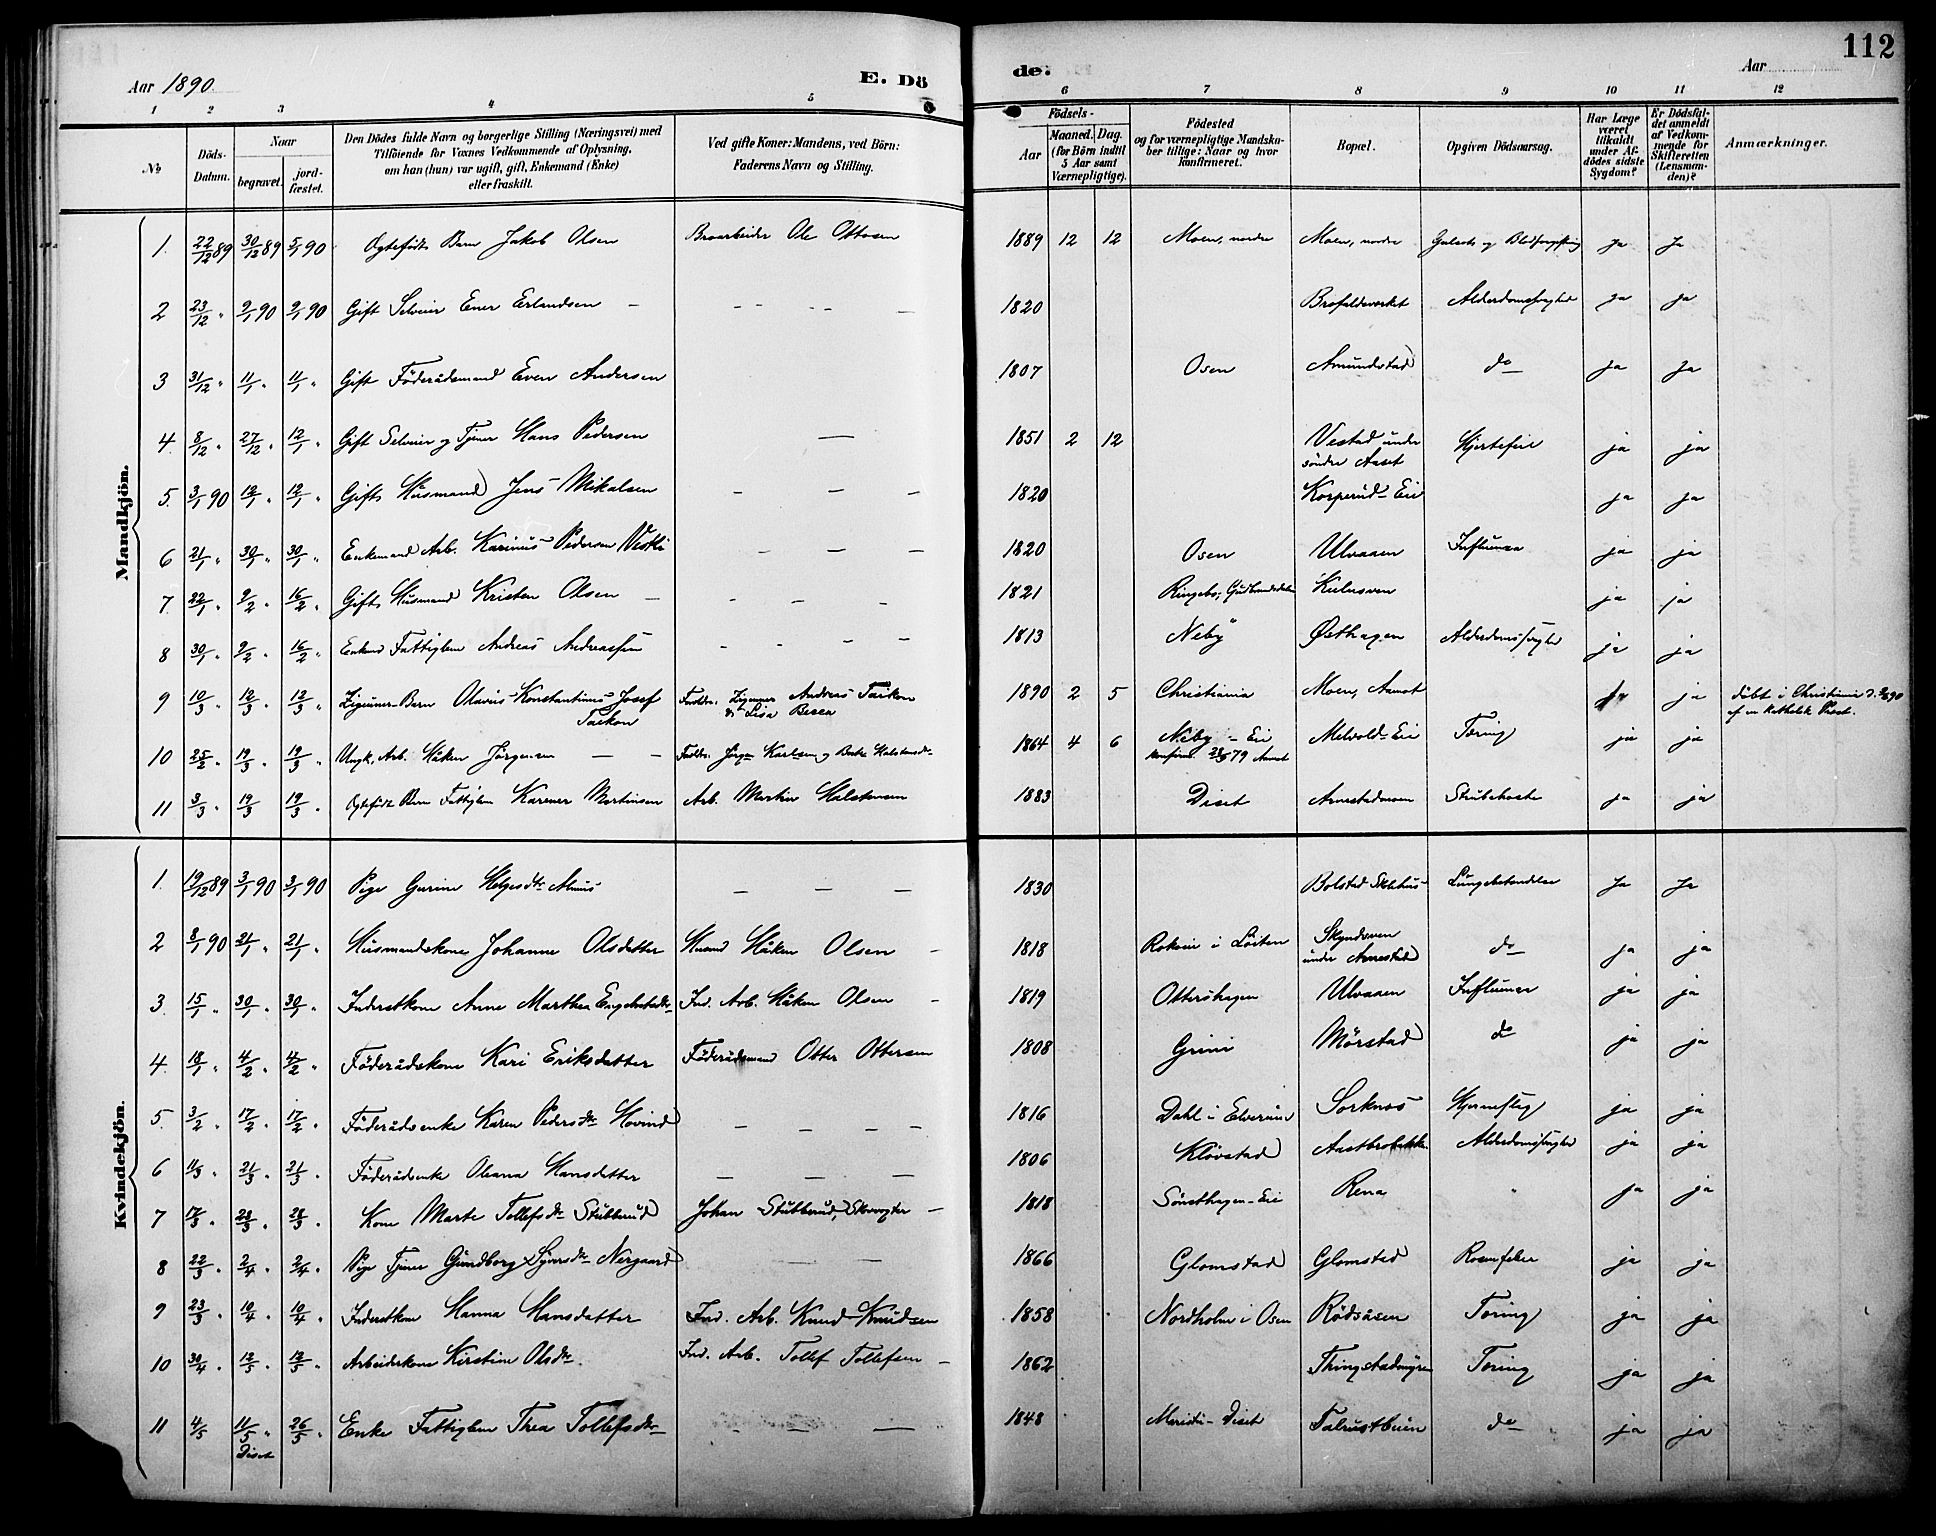 112
Aar 1890.
E. Dö
de.
Aar
1 2 3 4 5 6 7 8 9 10 11 12
No
Döds-Datum.
Naar
begravet.
jord-fæstet.
Den Dödes fulde Navn og borgerlige Stilling (Næringsvei) med
Tilföiende for Voxnes Vedkommende af Oplysning,
om han (hun) var ugift, gift, Enkemand (Enke)
eller fraskilt.
Ved gifte Koner: Mandens, ved Börn:
Faderens Navn og Stilling.
Födsels-
Aar
Maaned. Dag.
(for Börn indtil
5 Aar samt
Værnepligtige).
Födested
og for værnepligtige Mandska-
ber tillige: Naar og hvor
konfirmeret.
Bopæl.
Opgiven Dödsaarsag.
Har Læge
været
tilkaldt
under Af-
dödes sidste
Sygdom?
Er Dödsfal-
det anmeldt
af Vedkom-
mende for
Skifteretten
(Lensman-
den)?
Anmærkninger.
Mandkjön.
1. 22/12 89 30/12 89 5/1 90 Ægtefødt Barn Jakob Olsen Broarbeider Ole Ottosen 1889 12 12 Moen, nordre Moen, nordre Gulsot og Blodforgiftning Ja Ja
2 23/12 " 2/1 90 2/1 90 Gift Selveier Ener Erlandsen — 1820 Brofaldsverket Alderdomssvaghed ja ja
3 31/12 " 11/1 " 11/1 " Gift Föderådsmand Even Andersen 1807 Osen Amundstad do ja Ja
4. 8/12 " 27/12 " 12/1 " Gift Selveier og Tjener Hans Pedersen — 1851 2 12 Vestad under søndre Aaset Hjertefeil ja ja
5. 3/1 90 12/1 " 12/1 " Gift Husmand Jens Mikalsen — — — 1820 Korperud-Eie ja ja
6 21/1 " 30/1 " 30/1 " Enkemand Arb. Karinus Pedersen Vestli — — — 1820 Osen Ulvaaen Influenza ja ja
7. 22/1 " 9/2 " 16/2 " Gift Husmand Kristen Olsen — 1821 Ringebo, Gudbrandsdalen Kulusven ja ja
8 30/1 " 9/2 " 16/2 " Enkmd Fattiglem Andreas Andreassen 1813 Neby Østhagen Alderdomssvaghed ja ja
9 10/3 " 12/3 " 12/3 " Zigeuner-Barn Olavus Konstantinus Josef Taikon Forældre: Zigeuner Andreas Taikon og Lisa 1890 2 5 Christiania Moen, Aamot ja ja döbt i Christiania af en katholsk Præst.
10 25/2 " 19/3 " 19/3 " Ungk. Arb. Håken Jørgensen — — Forældre: Jørgen Karlsen og 1864 4 6 Neby - Eie konfirm. 79 Aamot Melvold-Eie Tæring ja ja
11 3/3 " 19/3 " 19/3 " Ægtefødt Barn Fattiglem Karener Martinsen Arb. Martin Halstensen 1883 Diset Arnestadmoen Strubehoste ja ja
Kvindekjön.
1. 19/12 89 3/1 90 3/1 90 Pige Gurine Helgesdtr. — — — 1830 Bolstad Skolehus Lungebetændelse Ja Ja
2 8/1 90 21/1 " 21/1 " Husmandskone Johanne Olsdatter Husmd Håken Olsen — 1818 Rokoie i Løiten Skyndsven under Arnestad do ja ja
3. 15/1 " 30/1 " 30/1 " Inderstkone Anne Marthea Engebretsdtr. Ind. Arb. Håken Olsen — 1819 Ottershagen Ulvaaen Influenza ja ja
4. 18/1 " 4/2 " 4/2 " Föderådskone Kari Eriksdatter Föderådsmand Otter Ottersen 1808 Grini Mørstad do ja ja
5. 3/2 " 17/2 " 17/2 " Föderådsenke Karen Pedersdtr. Hovind — — — — 1816 Dahl i Elverum Sorknes Hjerneslag ja ja
6 11/3 " 21/3 " 21/3 " Föderådsenke Oleana Hansdatter — — — 1806 Kløvstad Aastbrobakken Alderdomssvaghed ja ja
7 17/3 " 28/3 " 28/3 " Kone Marte Tollefsdtr. Stubberud Johan Stubberud, Skovvogter — 1818 Sønsthagen-Eie Rena " ja ja
8 22/3 " 2/4 " 2/4 " Pige Tjener Gundborg Syversdtr. Nergaard — — 1866 Glomstad Glomstad Rosenfeber ja ja
9 23/3 " 10/4 " 10/4 " Inderstkone Hanna Hansdatter Ind. Arb. Knud Knudsen 1858 Nordholm i Osen Rødsåsen Tæring ja ja
10 30/4 " 12/5 " 12/5 " Arbeiderkone Kirstine Olsdtr. Ind. Arb. Tollef Tollefsen — 1862 Thingstadmyren Tæring ja ja
11 4/5 11/5 " Diset 26/5 " Enke Fattiglem Thea Tollefsdtr. — — 1848 Diset do ja ja